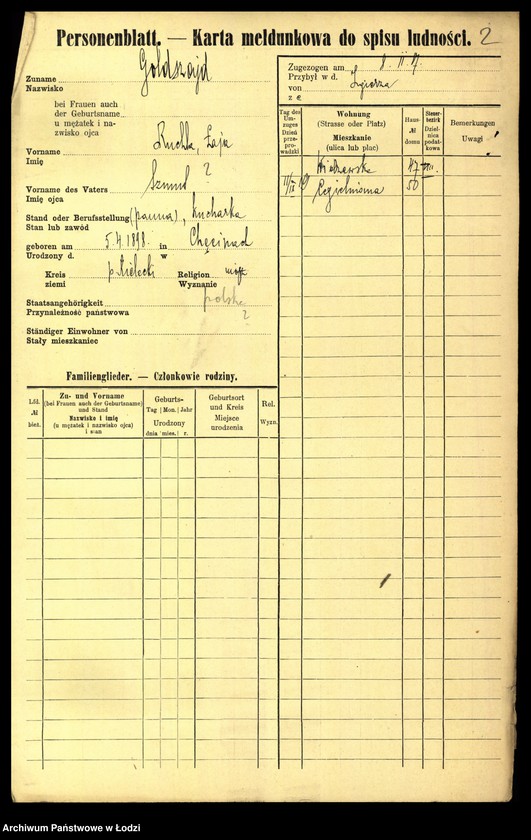 Personenblatt. — Karta meldunkowa do spisu ludności. 2
Zuname Goldszajd
Nazwisko
bei Frauen auch
der Geburtsname
u mężatek i na-
zwisko ojca
Vorname Ruchla, Łaja
Imię
Vorname des Vaters Szmul ?
Imię ojca
Stand oder Berufsstellung (panna), kucharka
Stan lub zawód
geboren am 5.4.1898. in
Urodzony d. w
Kreis p. Kielecki Religion mojż
ziemi Wyznanie
Staatsangehörigkeit polska
Przynależność państwowa ?
Ständiger Einwohner von
Stały mieszkaniec
Zugezogen am 8. II. 19.
Przybył w d.
von Zgierza
z e
Tag des Um-zuges Dzień prze-prowadzki
Wohnung
(Strasse oder Platz)
Mieszkanie
(ulica lub plac)
Haus-
№
domu
Steuer-bezirk Dziel-nica podat-kowa
Bemerkungen
Uwagi
47
Cegielniana 50
Familienglieder. — Członkowie rodziny.
Lfd.
№
bież.
Zu- und Vorname
(bei Frauen auch der Geburtsname)
und Stand
Nazwisko i imię
(u mężatek i nazwisko ojca)
i stan
Geburts-
Tag Mon. Jahr
Urodzony
dnia mies. r.
Geburtsort
und Kreis
Miejsce
urodzenia
Rel.
Wyzn.
Archiwum Państwowe w Łodzi